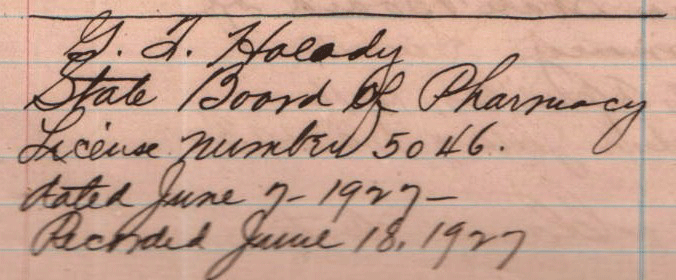 G. T. Holady
State Board of Pharmacy
License number 5046.
dated June 7-1927-
Recorded June 18, 1927